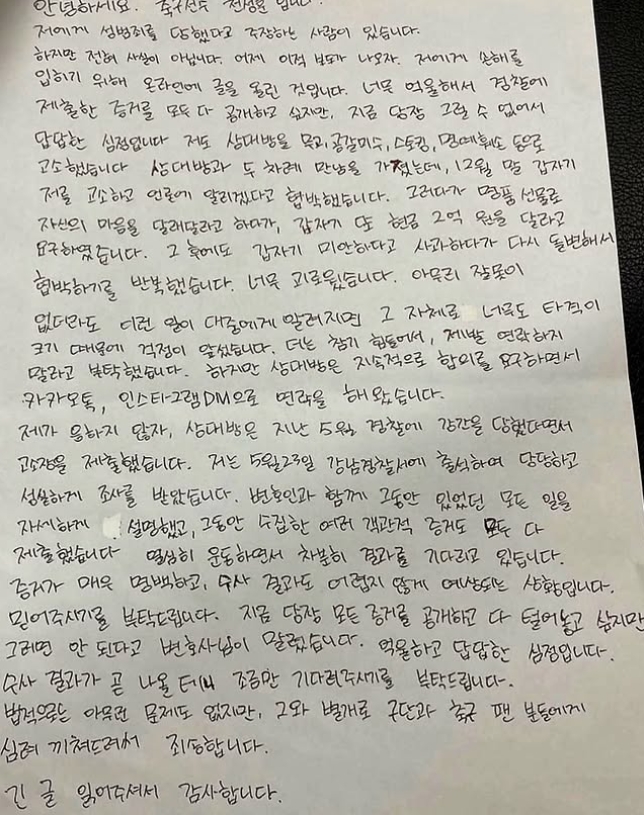 안녕하세요. 축구선수 전성훈입니다.
저에게 성범죄를 당했다고 주장하는 사람이 있습니다.
하지만 전혀 사실이 아닙니다. 어제 이적 보도가 나오자. 저에게 손해를
입히기 위해 온라인에 글을 올린 것입니다. 너무 억울해서 경찰에
제출한 증거를 모두 다 공개하고 싶지만, 지금 당장 그럴 수 없어서
답답한 심정입니다 저도 상대방을 무고, 공갈미수, 스토킹, 명예훼손 등으로
고소했습니다 상대방과 두 차례 만남을 가졌는데, 12월 말 갑자기
저를 고소하고 언론에 알리겠다고 협박했습니다. 그러다가 명품 선물로
자신의 마음을 달래달라고 하다가, 갑자기 또 현금 2억 원을 달라고
요구하였습니다. 그 후에도 갑자기 미안하다고 사과하다가 다시 돌변해서
협박하기를 반복했습니다. 너무 괴로웠습니다. 아무리 잘못이
없더라도 이런 일이 대중에게 알려지면 그 자체로 너무도 타격이
크기 때문에 걱정이 앞섰습니다. 저는 참기 힘들어서, 제발 연락하지
말라고 부탁했습니다. 하지만 상대방은 지속적으로 합의를 요구하면서
카카오톡, 인스타그램DM으로 연락을 해왔습니다.
제가 응하지 않자, 상대방은 지난 5월 경찰에 강간을 당했다면서
고소장을 제출했습니다. 저는 5월23일 강남경찰서에 출석하여 당당하고
성실하게 조사를 받았습니다. 변호인과 함께 그동안 있었던 모든 일을
자세하게 설명했고, 그동안 수집한 여러 객관적 증거도 모두 다
제출했습니다 열심히 운동하면서 차분히 결과를 기다리고 있습니다.
증거가 매우 명백하고, 수사 결과도 어렵지 않게 예상되는 상황입니다.
믿어주시기를 부탁드립니다. 지금 당장 모든 증거를 공개하고 다 털어놓고 싶지만
그러면 안 된다고 변호사님이 말렸습니다. 억울하고 답답한 심정입니다.
수사 결과가 곧 나올 테니 조금만 기다려주시기를 부탁드립니다.
법적으로는 아무런 문제도 없지만, 그와 별개로 구단과 축구 팬 분들에게
심려 끼쳐드려서 죄송합니다.
긴 글 읽어주셔서 감사합니다.